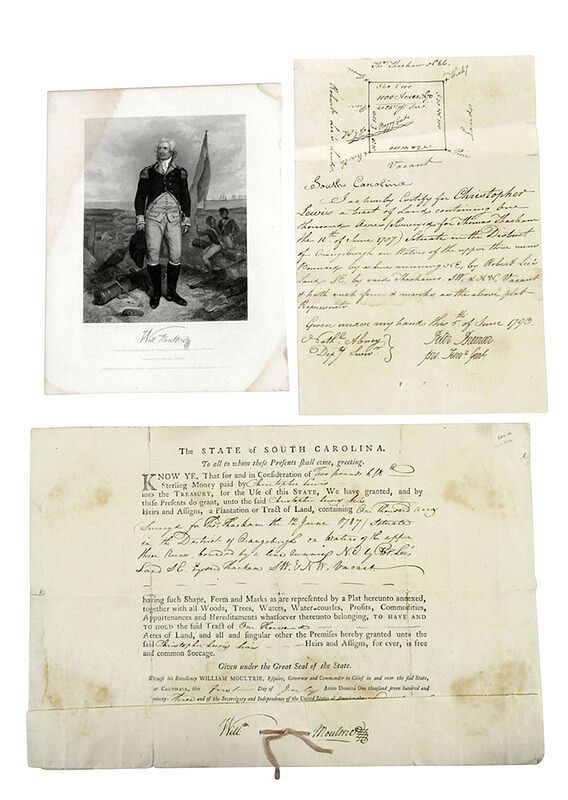 Will Moultrie
Thos Harkom
1000 Acres
Vacant
South Carolina
I do hereby Certify for Christopher
Lewis a tract of Lands containing One
thousand Acres (Surveyed for Thomas Harkom
the 12th of June 1787) Situate in the District
of Orangeburgh on Waters of the upper three runs
Bounded by a line running NE, by Robert Lee's
Land SE, by said Harkoms, SW. & NW, Vacant
& hath such form & marks as the above plat
Represents
Given under my hand this 5th of June 1793.
Nathl. Abney
Depy. Survr.
The STATE of SOUTH CAROLINA.
To all to whom these Presents shall come, greeting.
KNOW YE, That for and in Consideration of Two pounds
Sterling Money paid by Christopher Lewis
into the TREASURY, for the Use of this STATE, We have granted, and by
these Presents do grant, unto the said Christopher Lewis his
Heirs and Assigns, a Plantation or Tract of Land, containing One thousand acres
Surveyed for Thos Harkom the 12 June 1787 Situate
in the District of Orangeburgh on Waters of the upper
three Runs bounded by a line running NE by Robt Lee's
Land SE. by said Harkom SW. & N.W. Vacant
having such Shape, Form and Marks as are represented by a Plat hereunto annexed,
together with all Woods, Trees, Waters, Water-courses, Profits, Commodities,
Appurtenances and Hereditaments whatsoever thereunto belonging, TO HAVE AND
TO HOLD the said Tract of One thousand
Acres of Land, and all and singular other the Premises hereby granted unto the
said Christopher Lewis his Heirs and Assigns, for ever, in free
and common Soccage.
Given under the Great Seal of the State.
Witness his Excellency WILLIAM MOULTRIE, Esquire, Governor and Commander in Chief in and over the said State,
at COLUMBIA, this first Day of July Anno Domini One thousand seven hundred and
ninety-three and of the Sovereignty and Independence of the United States of America
Willm Moultrie